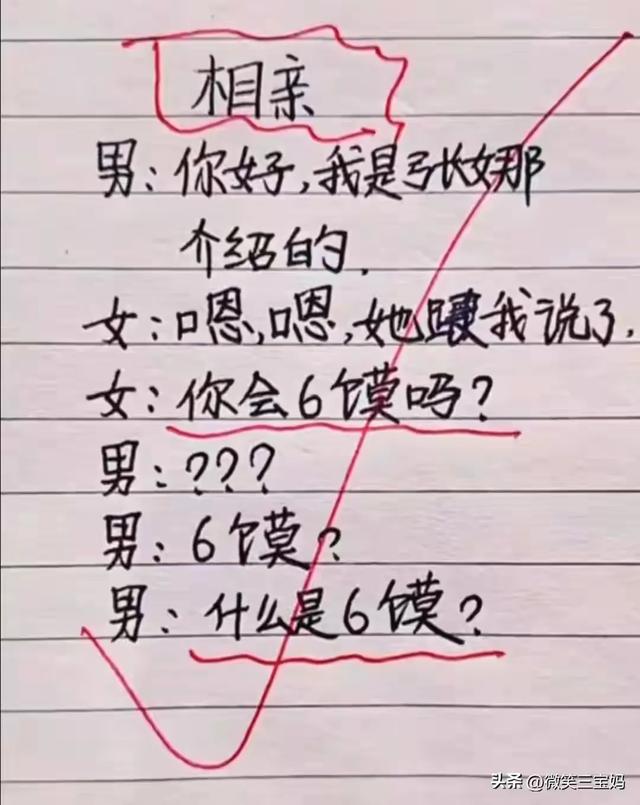 相亲
男：你好，我是张娜
介绍的．
女：嗯，嗯，她跟我说了．
女：你会6馍吗？
男：？？？
男：6馍？
男：什么是6馍？
头条 @微笑三宝妈